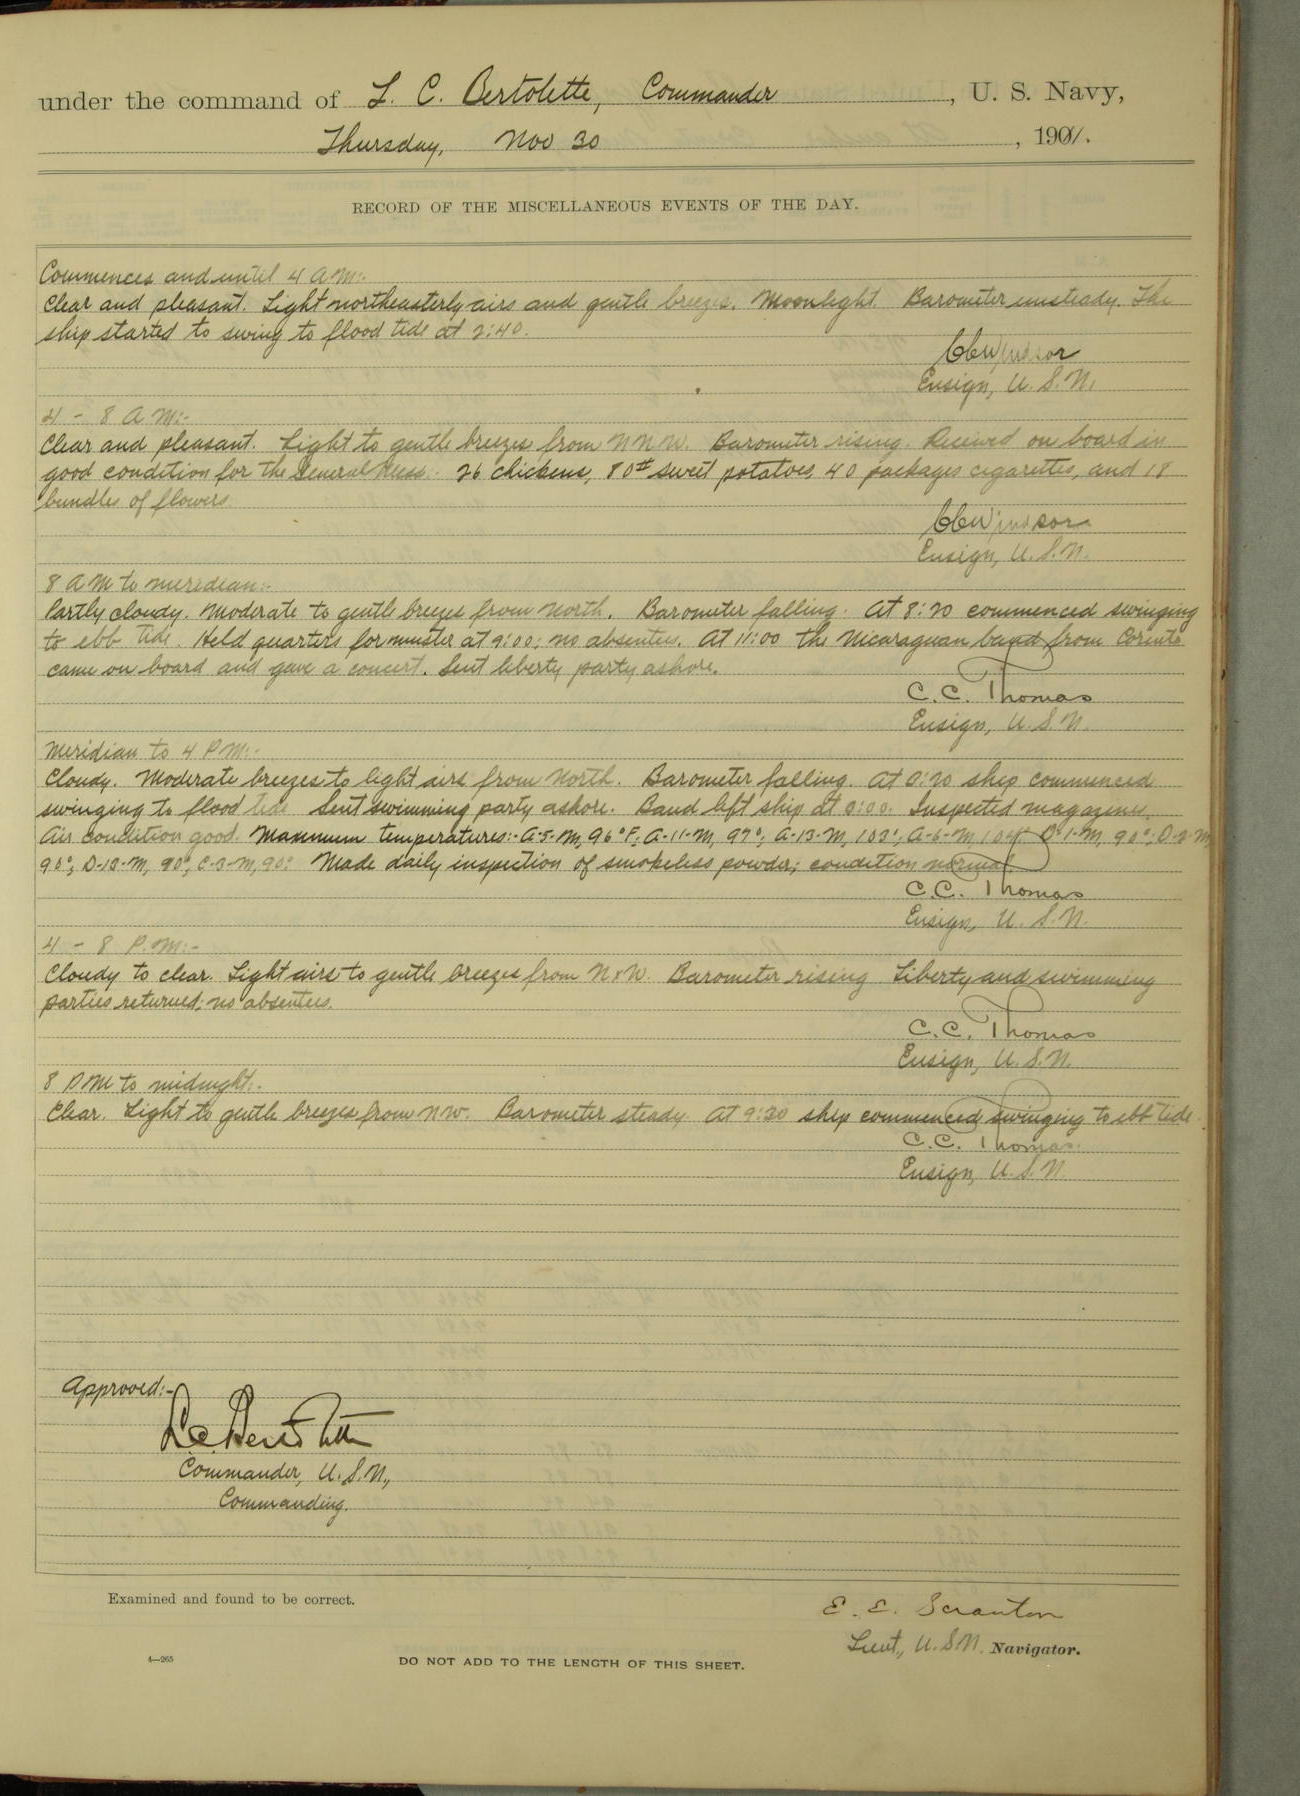 under the command of L. C. Bertolette, Commander, U. S. Navy,
Thursday, Nov 30, 190
RECORD OF THE MISCELLANEOUS EVENTS OF THE DAY.
Commences and until 4 A M:-
Clear and pleasant. Light northeasterly airs and gentle breezes. Moonlight. Barometer unsteady. The
ship started to swing to flood tide at 2:40.
Windsor
Ensign, U. S. N.
4 - 8 A M:-
Clear and pleasant. Light to gentle breezes from NNW. Barometer rising. Received on board in
good condition for the General Mess:- 26 chickens, 80# sweet potatoes, 40 packages cigarettes, and 18
bundles of flowers.
Windsor
Ensign, U. S. N.
8 A M to meridian:-
Partly cloudy. Moderate to gentle breezes from North. Barometer falling. At 8:20 commenced swinging
to ebb tide. Held quarters for muster at 9:00; no absentees. At 11:00 the Nicaraguan band from Corinto
came on board and gave a concert. Sent liberty party ashore.
C. C. Thomas
Ensign, U. S. N.
Meridian to 4 P M:-
Cloudy. Moderate breezes to light airs from North. Barometer falling. At ship commenced
swinging to flood tide. Sent swimming party ashore. Band left ship at Inspected magazines.
Air condition good. Maximum temperatures:- A-5-M, 96°F; A-11-M, 97°; A-13-M, 103°; A-6-M, 104°; D-1-M, 90°; D-2-M,
90°; D-13-M, 90°; C-3-M, 90°. Made daily inspection of smokeless powder; condition normal.
C. C. Thomas
Ensign, U. S. N.
4 - 8 P. M:-
Cloudy to clear. Light airs to gentle breezes from NxW. Barometer rising. Liberty and swimming
parties returned; no absentees.
C. C. Thomas
Ensign, U. S. N.
8 P M to midnight:-
Clear. Light to gentle breezes from NW. Barometer steady. At 9:30 ship commenced swinging to ebb tide.
C. C. Thomas
Ensign, U. S. N.
Approved:-
L C Bertolette
Commander, U. S. N.,
Commanding.
Examined and found to be correct.
E. E. Scranton
Lieut., U. S. N. Navigator.
4—265
DO NOT ADD TO THE LENGTH OF THIS SHEET.